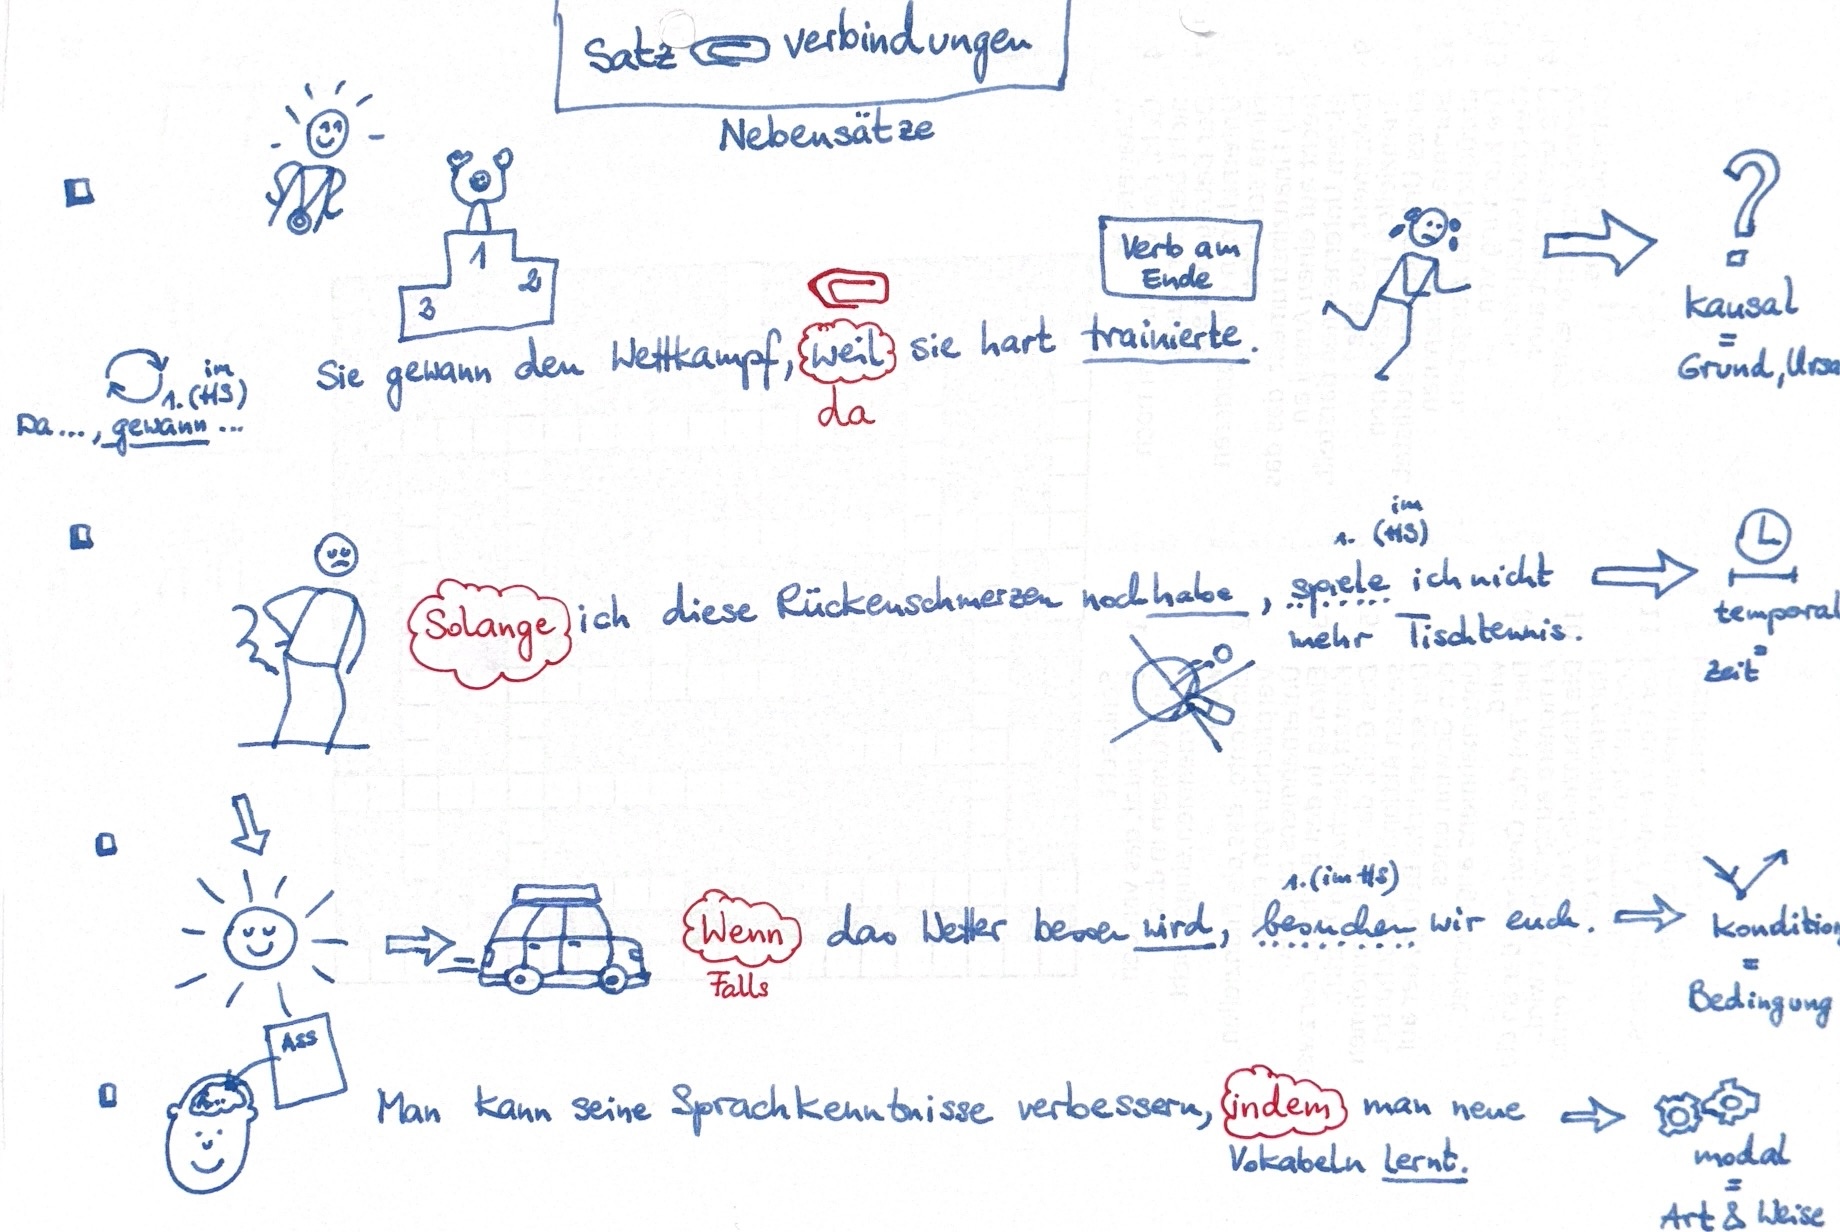 Satz verbindungen
Nebensätze
1
2
3
Verb am
Ende
Sie gewann den Wettkampf, weil sie hart trainierte.
da
im
1. (HS)
Da..., gewann...
kausal
=
Grund, Ursa
im
1. (HS)
Solange ich diese Rückenschmerzen noch habe, spiele ich nicht
mehr Tischtennis.
temporal
=
Zeit
1. (im HS)
Wenn das Wetter besser wird, besuchen wir euch.
Falls
kondition
=
Bedingung
Ass
Man kann seine Sprachkenntnisse verbessern, indem man neue
Vokabeln lernt.
modal
=
Art & Weise